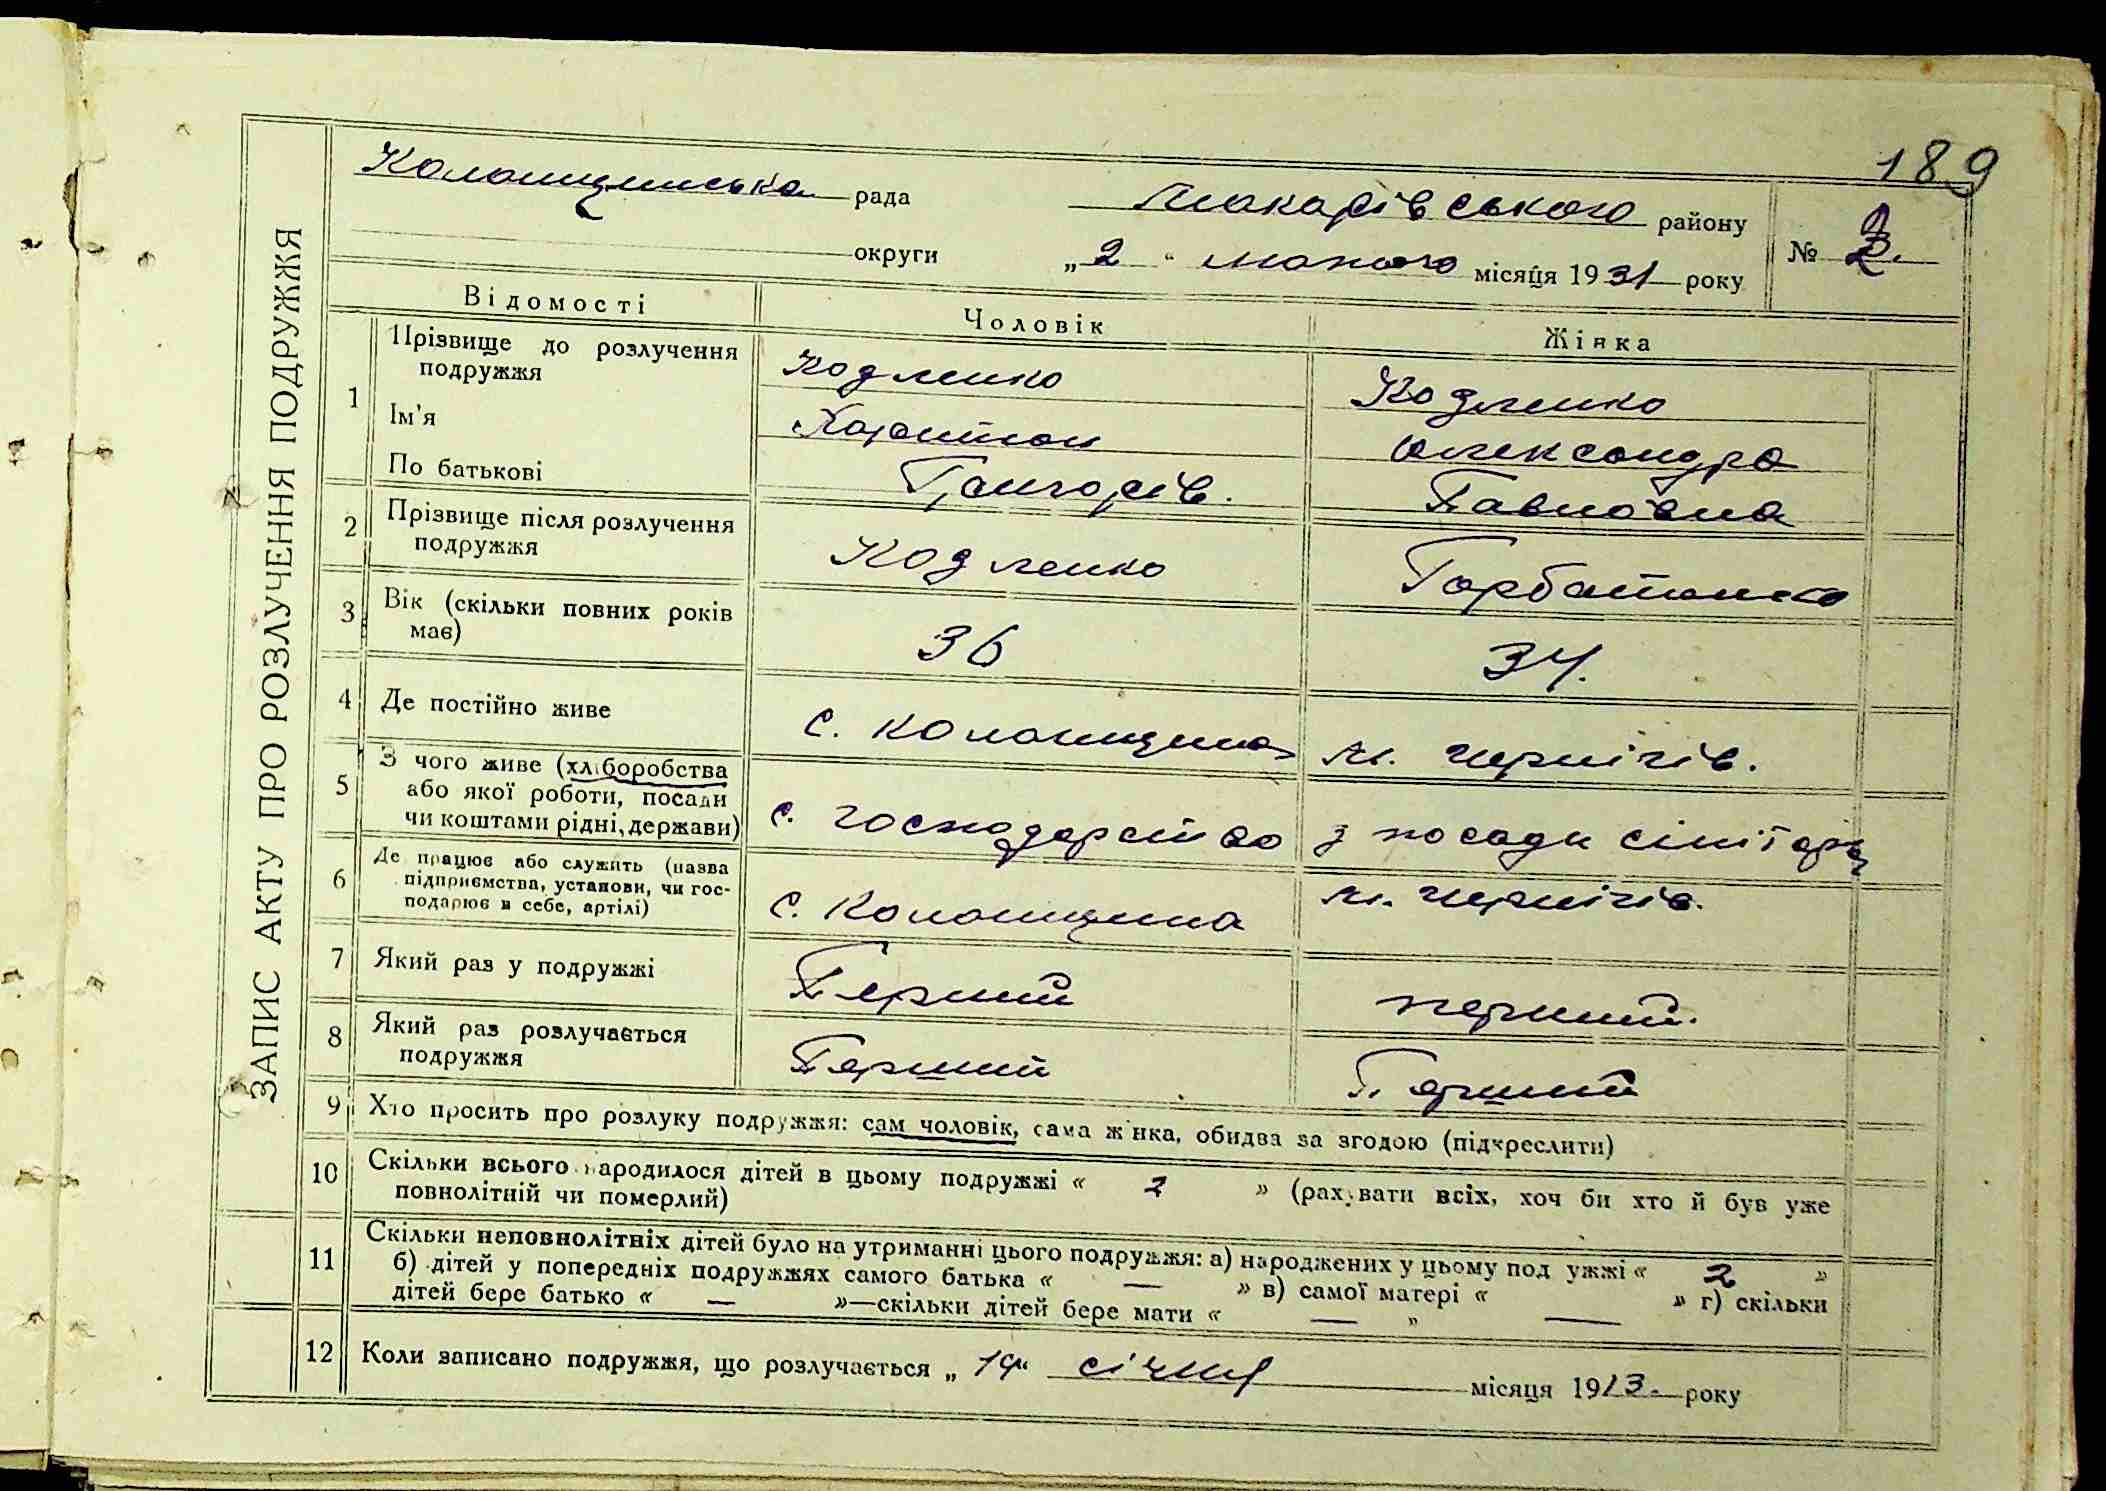 189
ЗАПИС АКТУ ПРО РОЗЛУЧЕННЯ ПОДРУЖЖЯ
Колонщинська рада Макарівського району № 2.
округи „2“ лютого місяця 1931 року
Відомості Чоловік Жінка
1 Прізвище до розлучення подружжя Кодленко Кодленко
Ім'я Харитон Олександра
По батькові Григорів. Павловна
2 Прізвище після розлучення подружжя Кодленко Горбатенко
3 Вік (скільки повних років має) 36 34.
4 Де постійно живе с. Колонщина м. Чернігів.
5 З чого живе (хліборобства або якої роботи, посади чи коштами рідні, держави) с. господарство з посади
6 Де працює або служить (назва підприємства, установи, чи господарює в себе, артілі) с. Колонщина м. Чернігів.
7 Який раз у подружжі Перший перший.
8 Який раз розлучається подружжя Перший Перший
9 Хто просить про розлуку подружжя: сам чоловік, сама жінка, обидва за згодою (підкреслити)
10 Скільки всього народилося дітей в цьому подружжі « 2 » (рахувати всіх, хоч би хто й був уже
повнолітній чи померлий)
11 Скільки неповнолітніх дітей було на утриманні цього подружжя: а) народжених у цьому подружжі « 2 »
б) дітей у попередніх подружжях самого батька « — » в) самої матері « — » г) скільки
дітей бере батько « — »—скільки дітей бере мати « — »
12 Коли записано подружжя, що розлучається „19“ січня місяця 1913. року